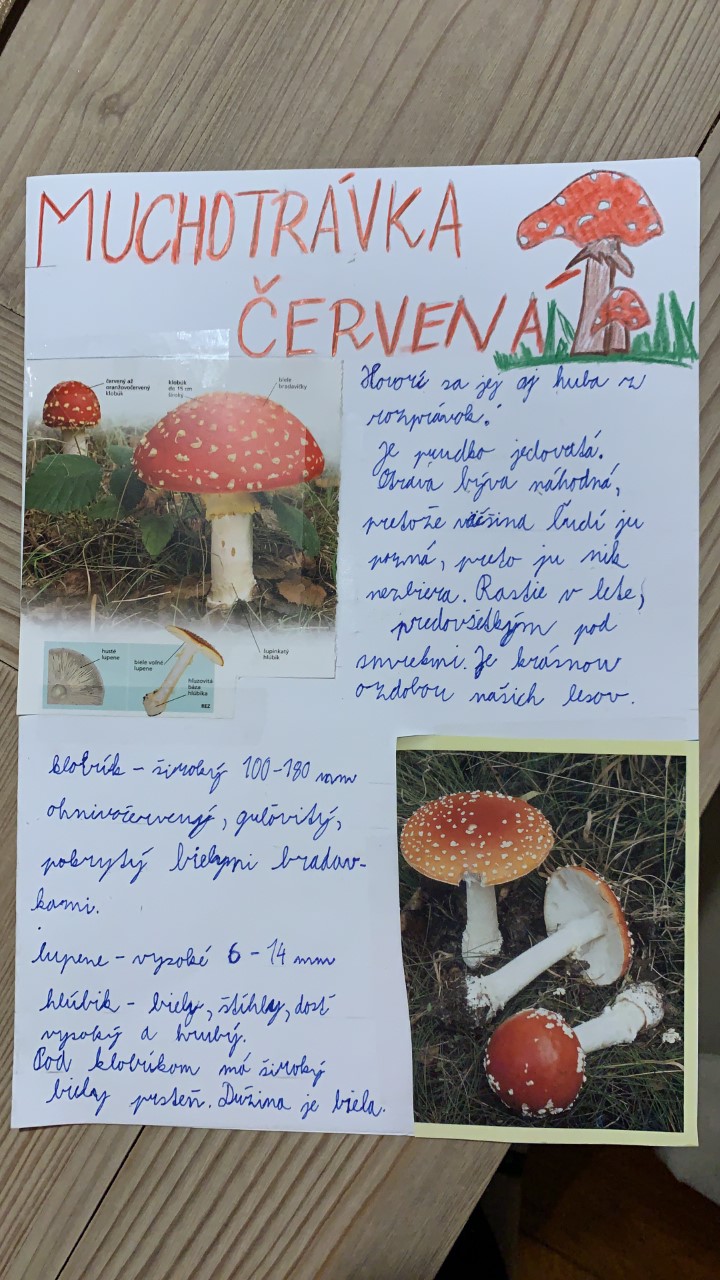 MUCHOTRÁVKA
ČERVENÁ
červený až
oranžovočervený
klobúk
klobúk
do 15 cm
široký
biele
bradavičky
lupinkatý
hlúbik
husté
lupene
biele voľné
lupene
hľuzovitá
báza
hlúbika
Hovorí sa jej aj huba z
rozprávok.
Je prudko jedovatá.
Otrava býva náhodná,
pretože väčšina ľudí ju
pozná, preto ju nik
nezbiera. Rastie v lete,
predovšetkým pod
smrekmi. Je krásnou
ozdobou našich lesov.
klobúk - široký 100-180 mm
ohnivočervený, guľovitý,
pokrytý bielymi bradav-
kami.
lupene - vysoké 6 - 14 mm
hlúbik - biely, štíhly, dosť
vysoký a hrubý.
Pod klobúkom má široký
biely prsteň. Dužina je biela.